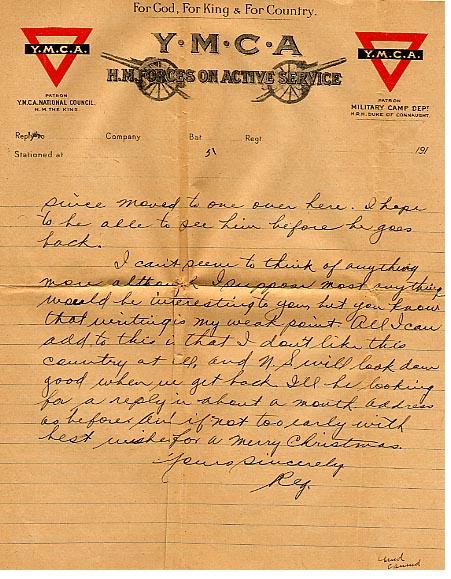 For God, For King & For Country.
Y·M·C·A
H.M. FORCES ON ACTIVE SERVICE
Y.M.C.A.
PATRON
Y.M.C.A. NATIONAL COUNCIL.
H.M. THE KING.
Y.M.C.A.
PATRON
MILITARY CAMP DEPT
H.R.H. DUKE OF CONNAUGHT.
Reply to Company Bat Regt.
Stationed at 51 191
since moved to one over here. I hope
to be able to see him before he goes
back.
I can't seem to think of anything
more although I suppose most anything
would be interesting to you, but you know
that writing is my weak point. All I can
add to this is that I don't like this
country at all, and N.S. will look darn
good when we get back. I'll be looking
for a reply in about a month. Address
as before, and if not too early with
best wishes for a Merry Christmas.
Yours Sincerely
Reg.